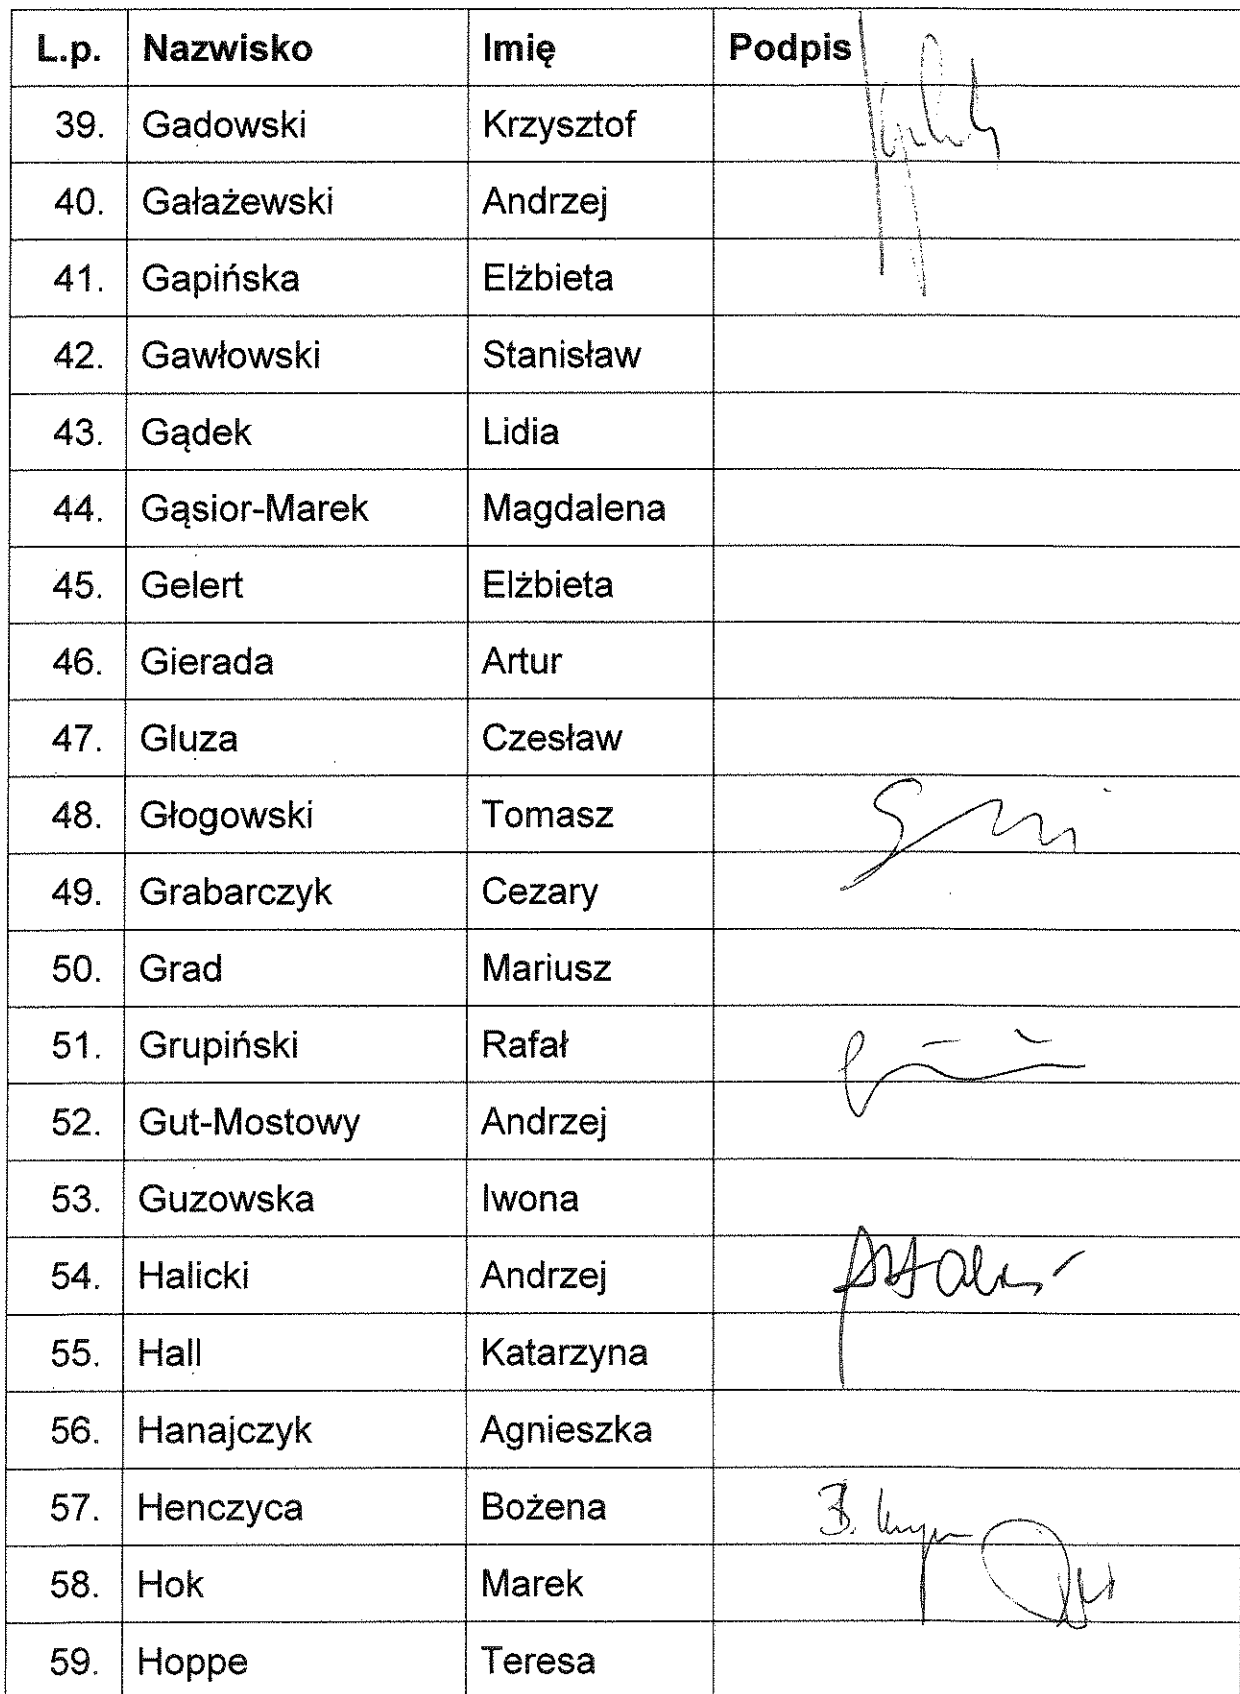 L.p. Nazwisko Imię Podpis
39. Gadowski Krzysztof
40. Gałażewski Andrzej
41. Gapińska Elżbieta
42. Gawłowski Stanisław
43. Gądek Lidia
44. Gąsior-Marek Magdalena
45. Gelert Elżbieta
46. Gierada Artur
47. Gluza Czesław
48. Głogowski Tomasz
49. Grabarczyk Cezary
50. Grad Mariusz
51. Grupiński Rafał
52. Gut-Mostowy Andrzej
53. Guzowska Iwona
54. Halicki Andrzej
55. Hall Katarzyna
56. Hanajczyk Agnieszka
57. Henczyca Bożena B.
58. Hok Marek
59. Hoppe Teresa